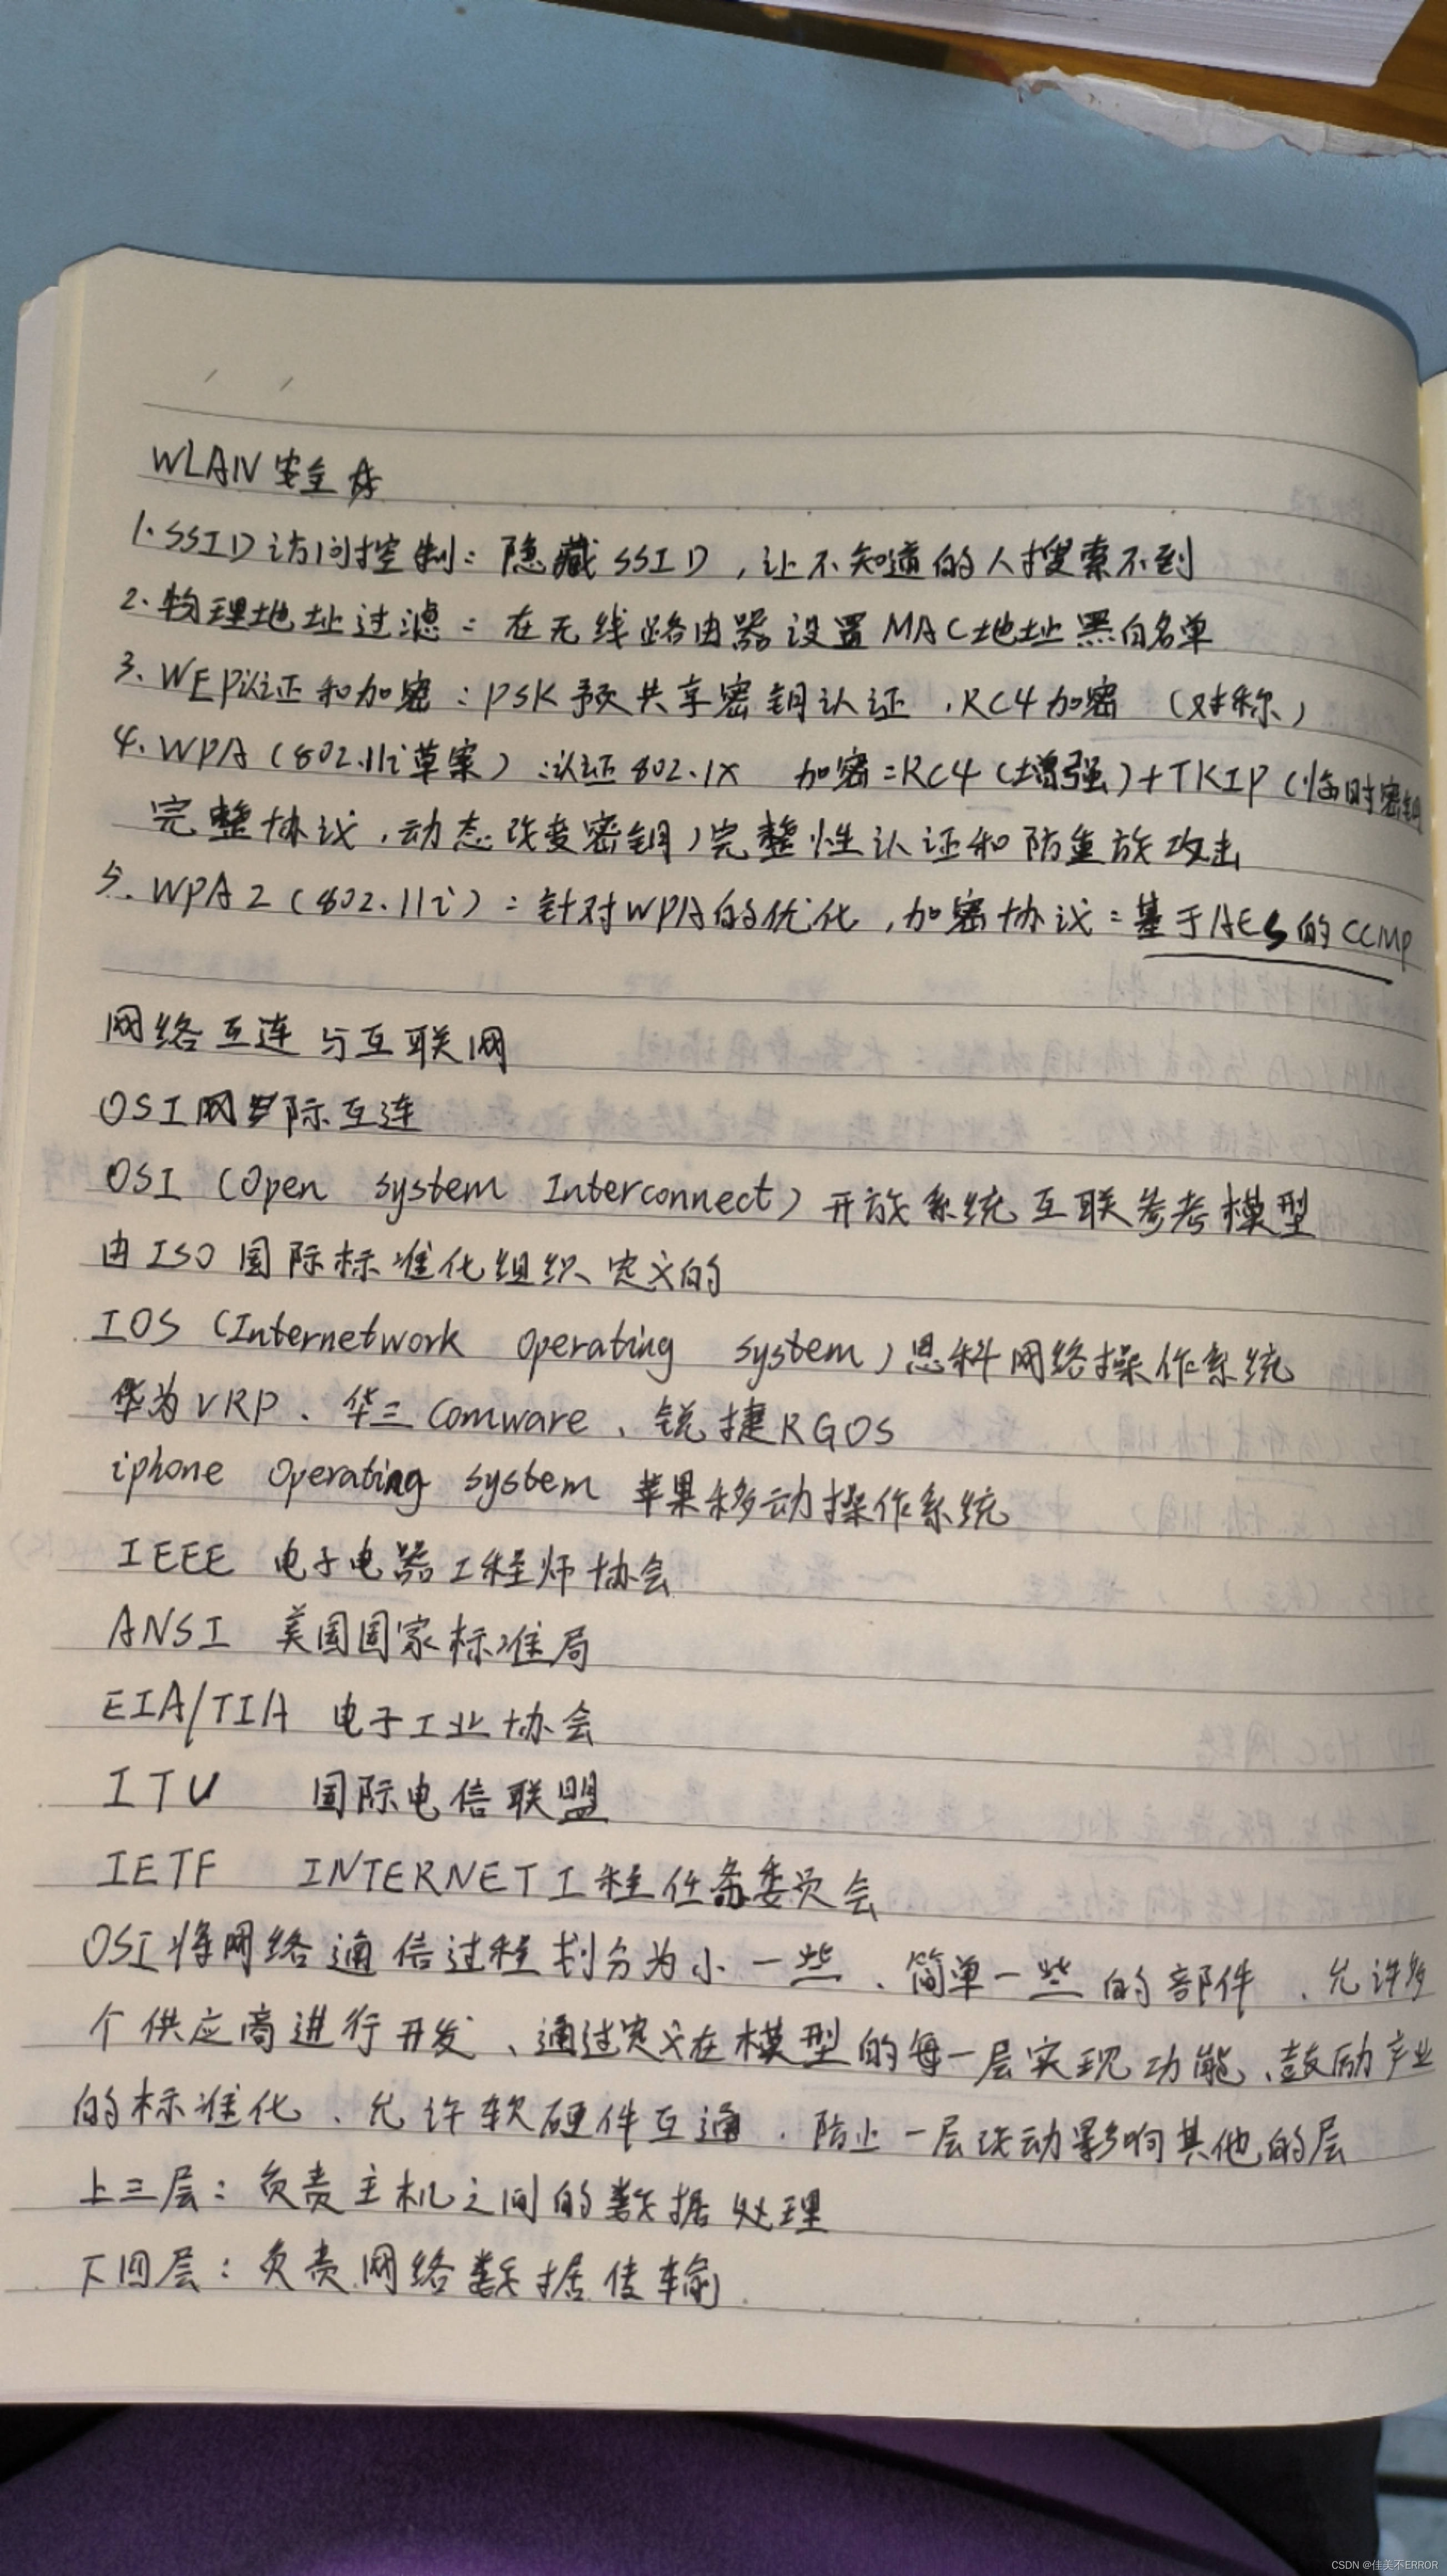 WLAN安全
1.SSID访问控制：隐藏SSID，让不知道的人搜索不到
2.物理地址过滤：在无线路由器设置MAC地址黑白名单
3.WEP认证和加密：PSK预共享密钥认证，RC4加密（对称）
4.WPA（802.11i草案）：认证802.1x 加密：RC4（增强）+TKIP（临时密钥
完整协议，动态改变密钥）完整性认证和防重放攻击
5.WPA2（802.11i）：针对WPA的优化，加密协议：基于AES的CCMP
网络互连与互联网
OSI网际互连
OSI（Open system Interconnect）开放系统互联参考模型
由ISO国际标准化组织定义的
IOS（Internetwork operating system）思科网络操作系统
华为VRP、华三Comware、锐捷RGOS
iphone operating system 苹果移动操作系统
IEEE 电子电器工程师协会
ANSI 美国国家标准局
EIA/TIA 电子工业协会
ITU 国际电信联盟
IETF INTERNET工程任务委员会
OSI将网络通信过程划分为小一些、简单一些的部件、允许多
个供应商进行开发、通过定义在模型的每一层实现功能、鼓励产业
的标准化、允许软硬件互通、防止一层改动影响其他的层
上三层：负责主机之间的数据处理
下四层：负责网络数据传输
CSDN @佳美不ERROR